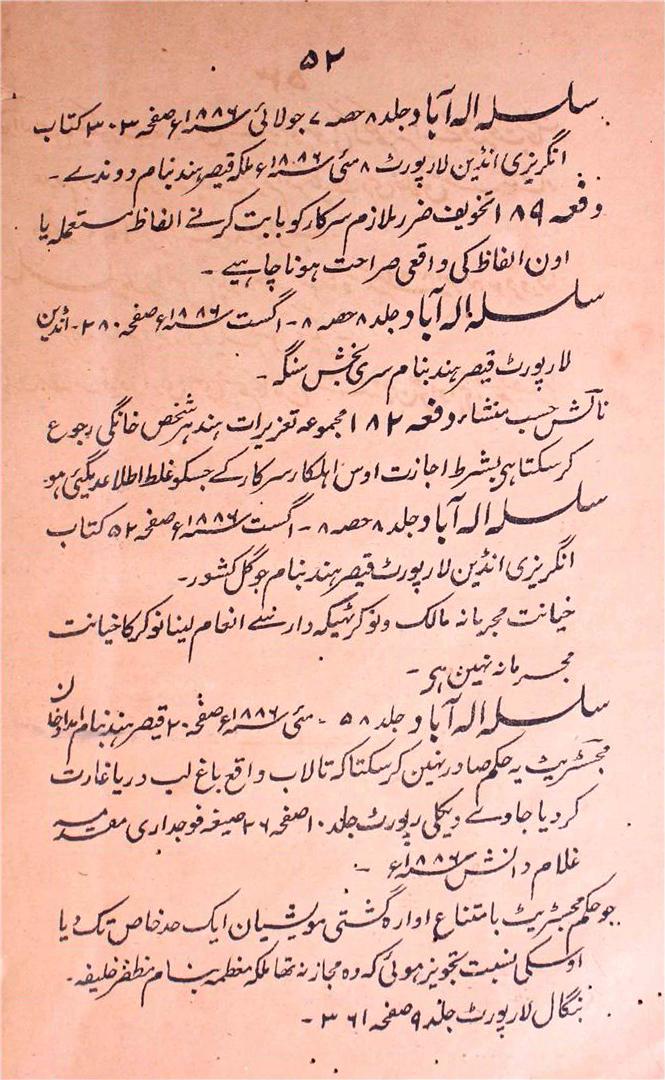 ۵۲
سلسلہ الہ آباد جلد ۸ حصہ ۷ جولائی سنہ ۱۸۸۶ء صفحہ ۳۰۳ کتاب
انگریزی انڈین لارپورٹ ۸ مئی سنہ ۱۸۸۶ء ملکہ قیصر ہند بنام دوندے ۔
دفعہ ۱۸۹ تخویف ضرر ملازم سرکار کو بابت کرنے الفاظ مستعملہ یا
اون الفاظ کی واقعی صراحت ہونا چاہیے ۔
سلسلہ الہ آباد جلد ۸ حصہ ۸ ۔ اگست سنہ ۱۸۸۶ء صفحہ ۳۸۰ ۔ انڈین
لارپورٹ قیصر ہند بنام سری بخش سنگہ ۔
نالش حسب منشاء دفعہ ۱۸۲ مجموعہ تعزیرات ہند ہر شخص خانگی رجوع
کر سکتا ہی بشرط اجازت اوس اہلکار سرکار کے جسکو غلط اطلاعدیگیئی ہو
سلسلہ الہ آباد جلد ۸ حصہ ۸ ۔ اگست سنہ ۱۸۸۶ء صفحہ ۵۲ کتاب
انگریزی انڈین لارپورٹ قیصر ہند بنام جوگل کشور ۔
خیانت مجرمانہ مالک و نوکر ٹہیکہ دار سے انعام لینا نوکر کا خیانت
مجرمانہ نہین ہی ۔
سلسلہ الہ آباد جلد ۸ ۵ ۔ مئی سنہ ۱۸۸۶ء صفحہ ۲۰ قیصر ہند بنام امدادخان
مجسٹریٹ یہ حکم صادر نہین کر سکتا کہ تالاب واقع باغ لب دریا غارت
کر دیا جاوے ویکلی رپورٹ جلد ۱۰ صفحہ ۲۶ صیغہ فوجداری مقدمہ
غلام دانش سنہ ۱۸۸۶ء ۔
جو حکم مجسٹریٹ بامتناع اوارہ گشتی مویشیان ایک حد خاص تک دیا
اوسکی نسبت تجویز ہوئی کہ وہ مجاز نہ تھا ملکہ معظمہ بنام مظفر خلیفہ ۔
بنگال لارپورٹ جلد ۹ صفحہ ۳۶۱ ۔